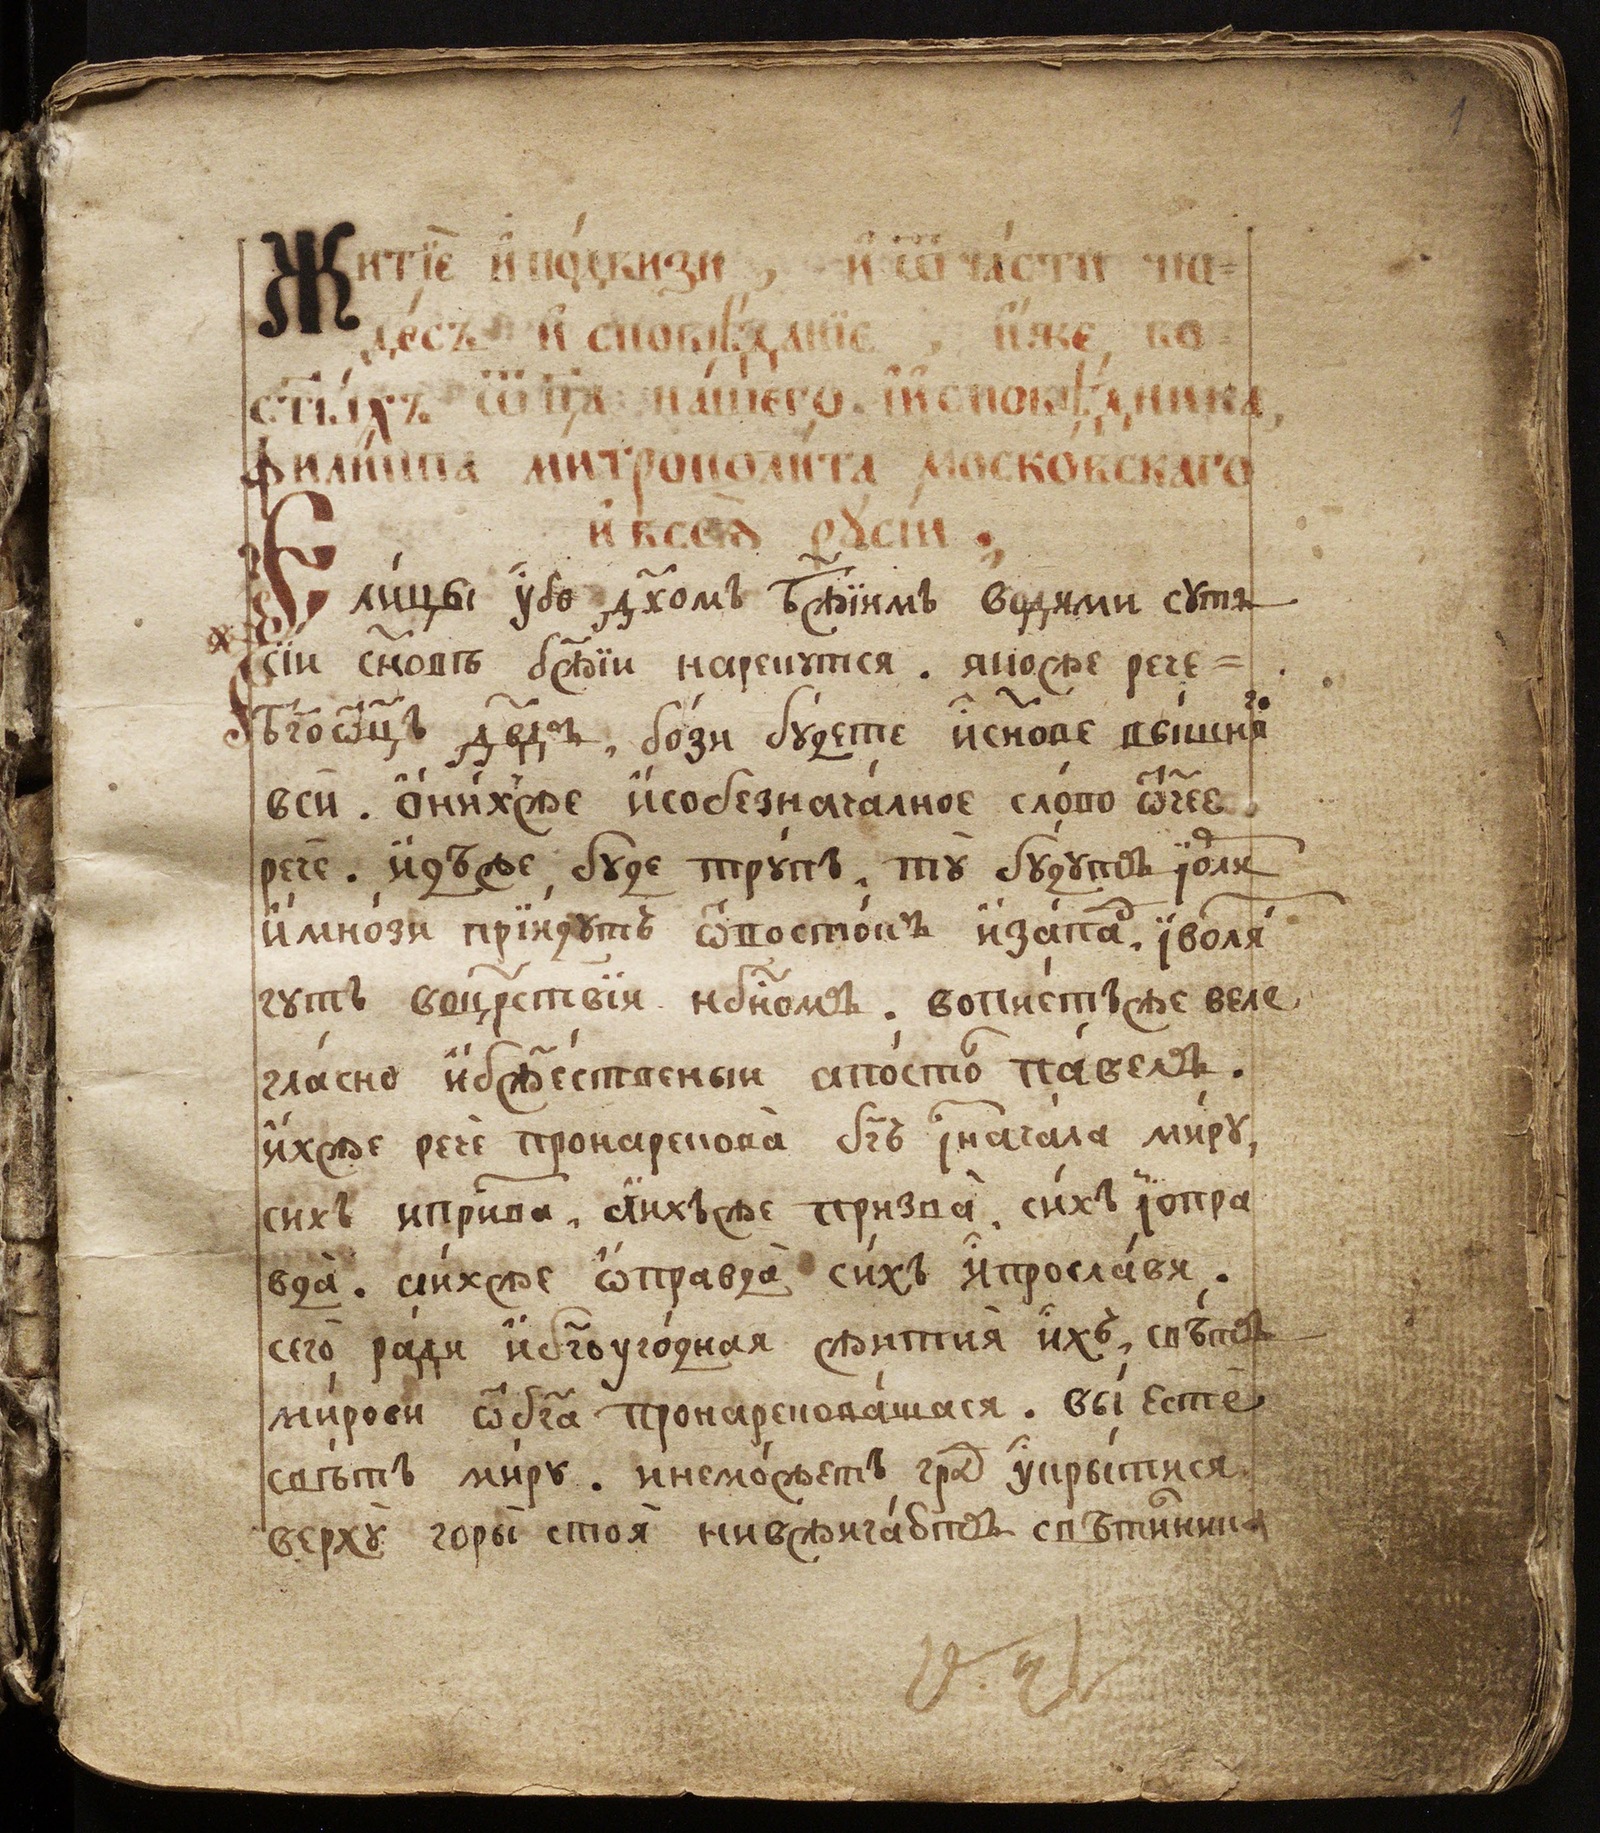 Житїѐ и҆по́двизи, и҆ѿча́сти чю=
де́съ и҆сповѣ́данїе, и҆́же во=
ст҃ы́хъ ѿц҃а̀ на́шего. и҆і҆сповѣ́дника,
фили́ппа митрополи́та моско́вскаго
и҆всеѧ̀ рꙋсі́и.
Ели́цы ꙋ҆́бо дх҃омъ бж҃їимъ водими сꙋть
сїи сн҃овѣ бж҃їи нарекꙋтсѧ. ꙗкоже рече=
бг҃оѿц҃ъ дв҃дъ, бо́зи бꙋ́дете и҆сн҃ове вы́шнѧⷢ҇
всѝ. ѡ҆ни́хже и҆собезнача́лное сло́во ѻ҆ч҃ее.
речѐ. и҆дѣже бꙋде трꙋпъ, тꙋ̀ бꙋ́дꙋтъ і҆ѻⷬ҇ли
и҆мно́зи прїидꙋтъ ѿвосто́къ и҆за́паⷣ, і҆возлѧ́
гꙋтъ воцрⷭ҇твїи нбⷭ҇номъ. вопиетъже веле
гла́сно и҆бжⷭ҇е́ственыи апо́столъ па́велъ.
и҆́хже речѐ пронаренова̀ бг҃ъ і҆знача́ла ми́рꙋ,
сихъ и призва̀, а҆и́хъже призва̀, си́хъ і҆опра
вда̀. аи́хже ѡ҆правда̀ си́хъ и҆просла́ви.
сего̀ ра́ди и҆бг҃оꙋго́днаѧ житиѧ̀ и҆́хъ, свѣтъ
ми́рови ѿбг҃а пронаренова́шасѧ. вы̀ естѐ
свѣ́тъ ми́рꙋ. и немо́жетъ граⷣ ꙋ҆кры́тисѧ
верхꙋ̀ горы̀ стоѧ̀ нивжига́ютъ свѣти́лника